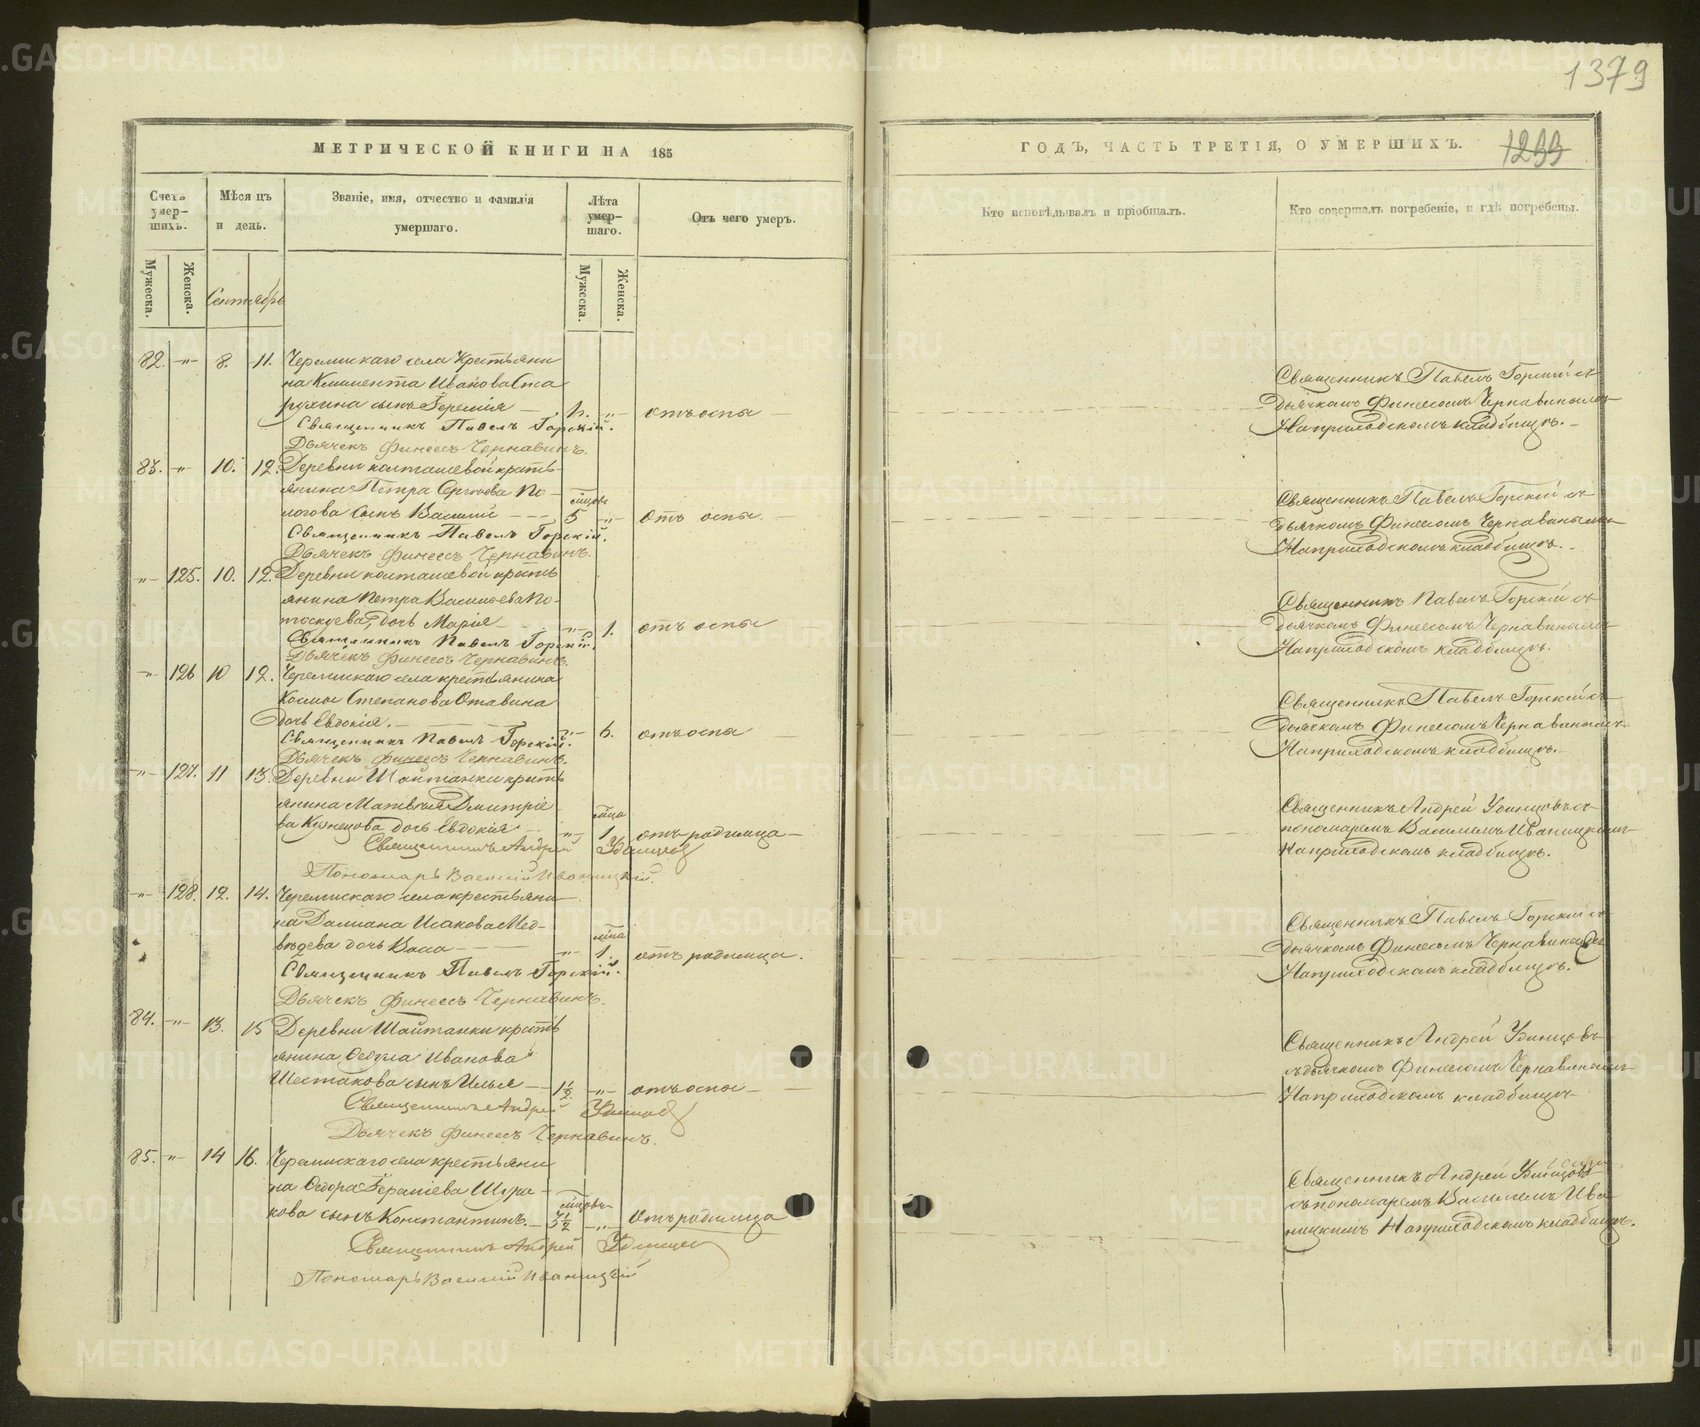 1379
МЕТРИЧЕСКОЙ КНИГИ НА 185
Счетъ умер-шихъ.
Мѣсяцъ и день.
Званіе, имя, отчество и фамилія умершаго.
Лѣта умер-шаго.
Отъ чего умеръ.
Мужеска.
Женска.
Сентябрь
Мужеска.
Женска.
82. -„- 8. 11. Черемискаго села Крестьяни
на Климента Иванова Ста
рухина сынъ Іеремія - „- отъ оспы
Священникъ Павелъ Горскій.
Дьячекъ Финеесъ Чернавинъ.
83. -„- 10. 12. Деревни колташевой кресть
янина Петра Сергѣева По-
логова сынъ Василій 5 -„- Отъ оспы.
Священникъ Павелъ Горскій.
Дьячекъ Финеесъ Чернавинъ.
-„- 125. 10. 12. Деревни колташевой кресть
янина Петра Васильева По-
дочь Марія -„- 1. отъ оспы
Священникъ Павелъ Горскій.
Дьячекъ Финеесъ Чернавинъ.
-„- 126 10 12. Черемискаго села крестьянина
Космы Степанова Отавина
дочь Евдокія. -„- 6. отъ оспы
Священникъ Павелъ Горскій.
Дьячекъ Финеесъ Чернавинъ.
-„- 127. 11 13. Деревни Шайтанки кресть
янина Матвѣя Дмитріе
ва Кузнецова дочь Евдокія -„- 1 отъ родимца -
Священникъ Андрей Удинцовъ
Пономарь Василій Иваницкій.
-„- 128. 12. 14. Черемискаго села крестьяни-
на Даміана Исакова Мед-
вѣдева дочь Васса -„- 1. отъ родимца.
Священникъ Павелъ Горскій.
Дьячекъ Финеесъ Чернавинъ.
84. -„- 13. 15 Деревни Шайтанки кресть
янина Ѳедула Иванова
Шестакова сынъ Илья 1½ -„- отъ оспы -
Священникъ Андрей Удинцовъ
Дьячекъ Финеесъ Чернавинъ.
85. -„- 14 16. Черемискаго села крестьяни
на Ѳедора Гераніева
сынъ Константинъ. -„- Отъ родимца
Священникъ Андрей Удинцев
Пономарь Василій Иваницкій
ГОДЪ, ЧАСТЬ ТРЕТІЯ, О УМЕРШИХЪ.
1233
Кто исповѣдывалъ и пріобщалъ.
Кто совершалъ погребеніе, и гдѣ погребены.
Священникъ Павелъ Горскій съ
дьячкомъ Финеесомъ Чернавинымъ
На приходскомъ кладбищѣ. -
Священникъ Павелъ Горскій съ
дьячкомъ Финеесомъ Чернавинымъ
На приходскомъ кладбищѣ.
Священникъ Павелъ Горскій съ
дьячкомъ Финеесомъ Чернавинымъ
На приходскомъ кладбищѣ.
Священникъ Павелъ Горскій съ
дьячкомъ Финеесомъ Чернавинымъ
На приходскомъ кладбищѣ.
Священникъ Андрей Удинцовъ съ
пономаремъ Василіемъ Иваницкимъ
На приходскомъ кладбищѣ.
Священникъ Павелъ Горскій съ
дьячкомъ Финеесомъ Чернавинымъ
На приходскомъ кладбищѣ.
Священникъ Андрей Удинцовъ
съ дьячкомъ Финеесомъ Чернавинымъ
На приходскомъ кладбищѣ
Священникъ Андрей Удинцовъ
съ пономаремъ Василіемъ Ива
ницкимъ На приходскомъ кладбищѣ.
METRIKI.GASO-URAL.RU